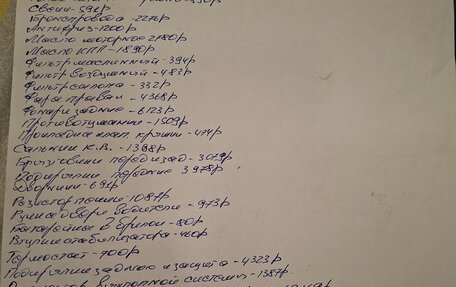 Свечи-591р
Бронепровода-2276р
Антифриз-1200р
Масло моторное 2780р
Масло КПП-1890р
Фильтр маслянный-394р
Фильтр воздушный-483р
Фильтр салона-332р
Фара правая-4368р
Фонари задние-6123р
Противотуманки-1509р
Прокладка клап. крышки-474р
Сальник К.В.-1398р
Брызговики перед и зад-3079р
Подкрылки передние 3978р
Дворники-691р
Резистор печки-1087р
Ручка двери водителя-973р
Батарейка в брелок-80р
Втулки стабилизатора-460р
Термостат-700р
Подкрылки задние и защита-4323р
выхлопной системы-1387р